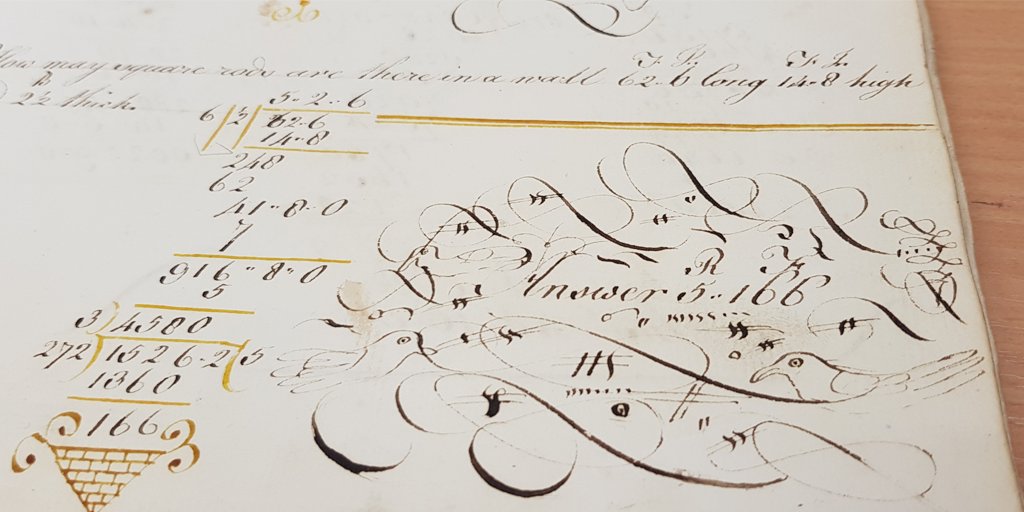 F. I. F. I.
How may square rods are there in a wall 62"6 long 14"8 high
B
2½ thick
5"2"6
6 2 62"6
14"8
248
62
41"8"0
7
916"8"0
5
3) 4580
272) 1526"2 (5
1360
166
R F
Answer 5"166